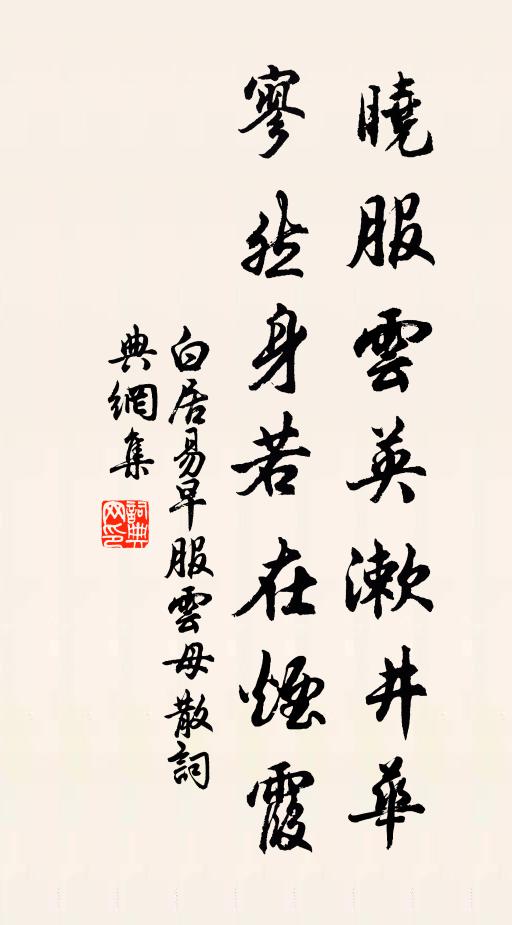 曉服雲英漱井華
寥然身若在煙霞
白居易早服雲母散詞
典網集
詞典网印